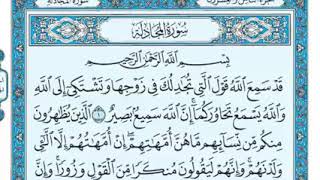 سُورَةُ المُجَادلَة
بِسْمِ اللَّهِ الرَّحْمَٰنِ الرَّحِيمِ
قَدْ سَمِعَ اللَّهُ قَوْلَ الَّتِي تُجَادِلُكَ فِي زَوْجِهَا وَتَشْتَكِي إِلَى اللَّهِ
وَاللَّهُ يَسْمَعُ تَحَاوُرَكُمَا إِنَّ اللَّهَ سَمِيعٌ بَصِيرٌ ۝١ الَّذِينَ يُظَاهِرُونَ
مِنكُم مِّن نِّسَائِهِم مَّا هُنَّ أُمَّهَاتِهِمْ إِنْ أُمَّهَاتُهُمْ إِلَّا الَّتِي
وَلَدْنَهُمْ وَإِنَّهُمْ لَيَقُولُونَ مُنكَرًا مِّنَ الْقَوْلِ وَزُورًا وَإِنَّ